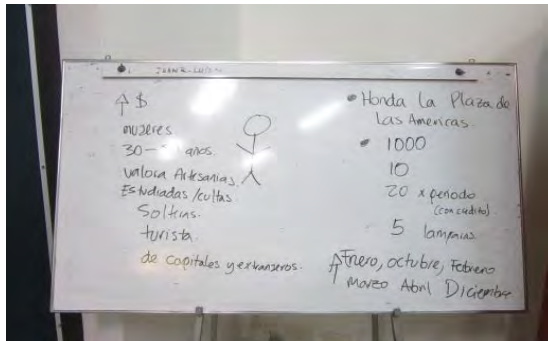 ↑ $
mujeres
30- años.
valora Artesanias.
Estudiadas/cultas.
Solteras.
turista.
de capitales y extranjeros.
• Honda la Plaza de
las Americas.
• 1000
10
20 x periodo
(con crédito).
5 lamparas.
↑ Enero, octubre, Febrero
marzo Abril Diciembre